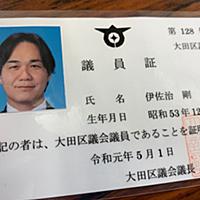 第 128
大田区議
議員証
氏名 伊佐治 剛
生年月日 昭和53年12
記の者は、大田区議会議員であることを証明
令和元年5月1日
大田区議会議長